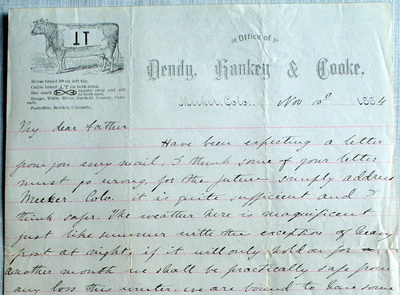 JT
Horse brand 69 on left hip.
Cattle brand JT on both sides.
Ear mark square crop and slit in both ears.
Range, White River, Garfield County, Colorado.
Postoffice, Meeker, Colorado.
Office of
Dendy, Hankey & Cooke,
Meeker, Colo. Nov 10th 1884
My dear father
Have been expecting a letter
from you every mail. I think some of your letters
must go wrong, for the future simply address
Meeker. Colo. it is quite sufficient and I
think safer. The weather here is magnificent
just like summer with the exception of heavy
frost at night, if it will only hold on for
another month we shall be practically safe from
any loss this winter, we are bound to have some